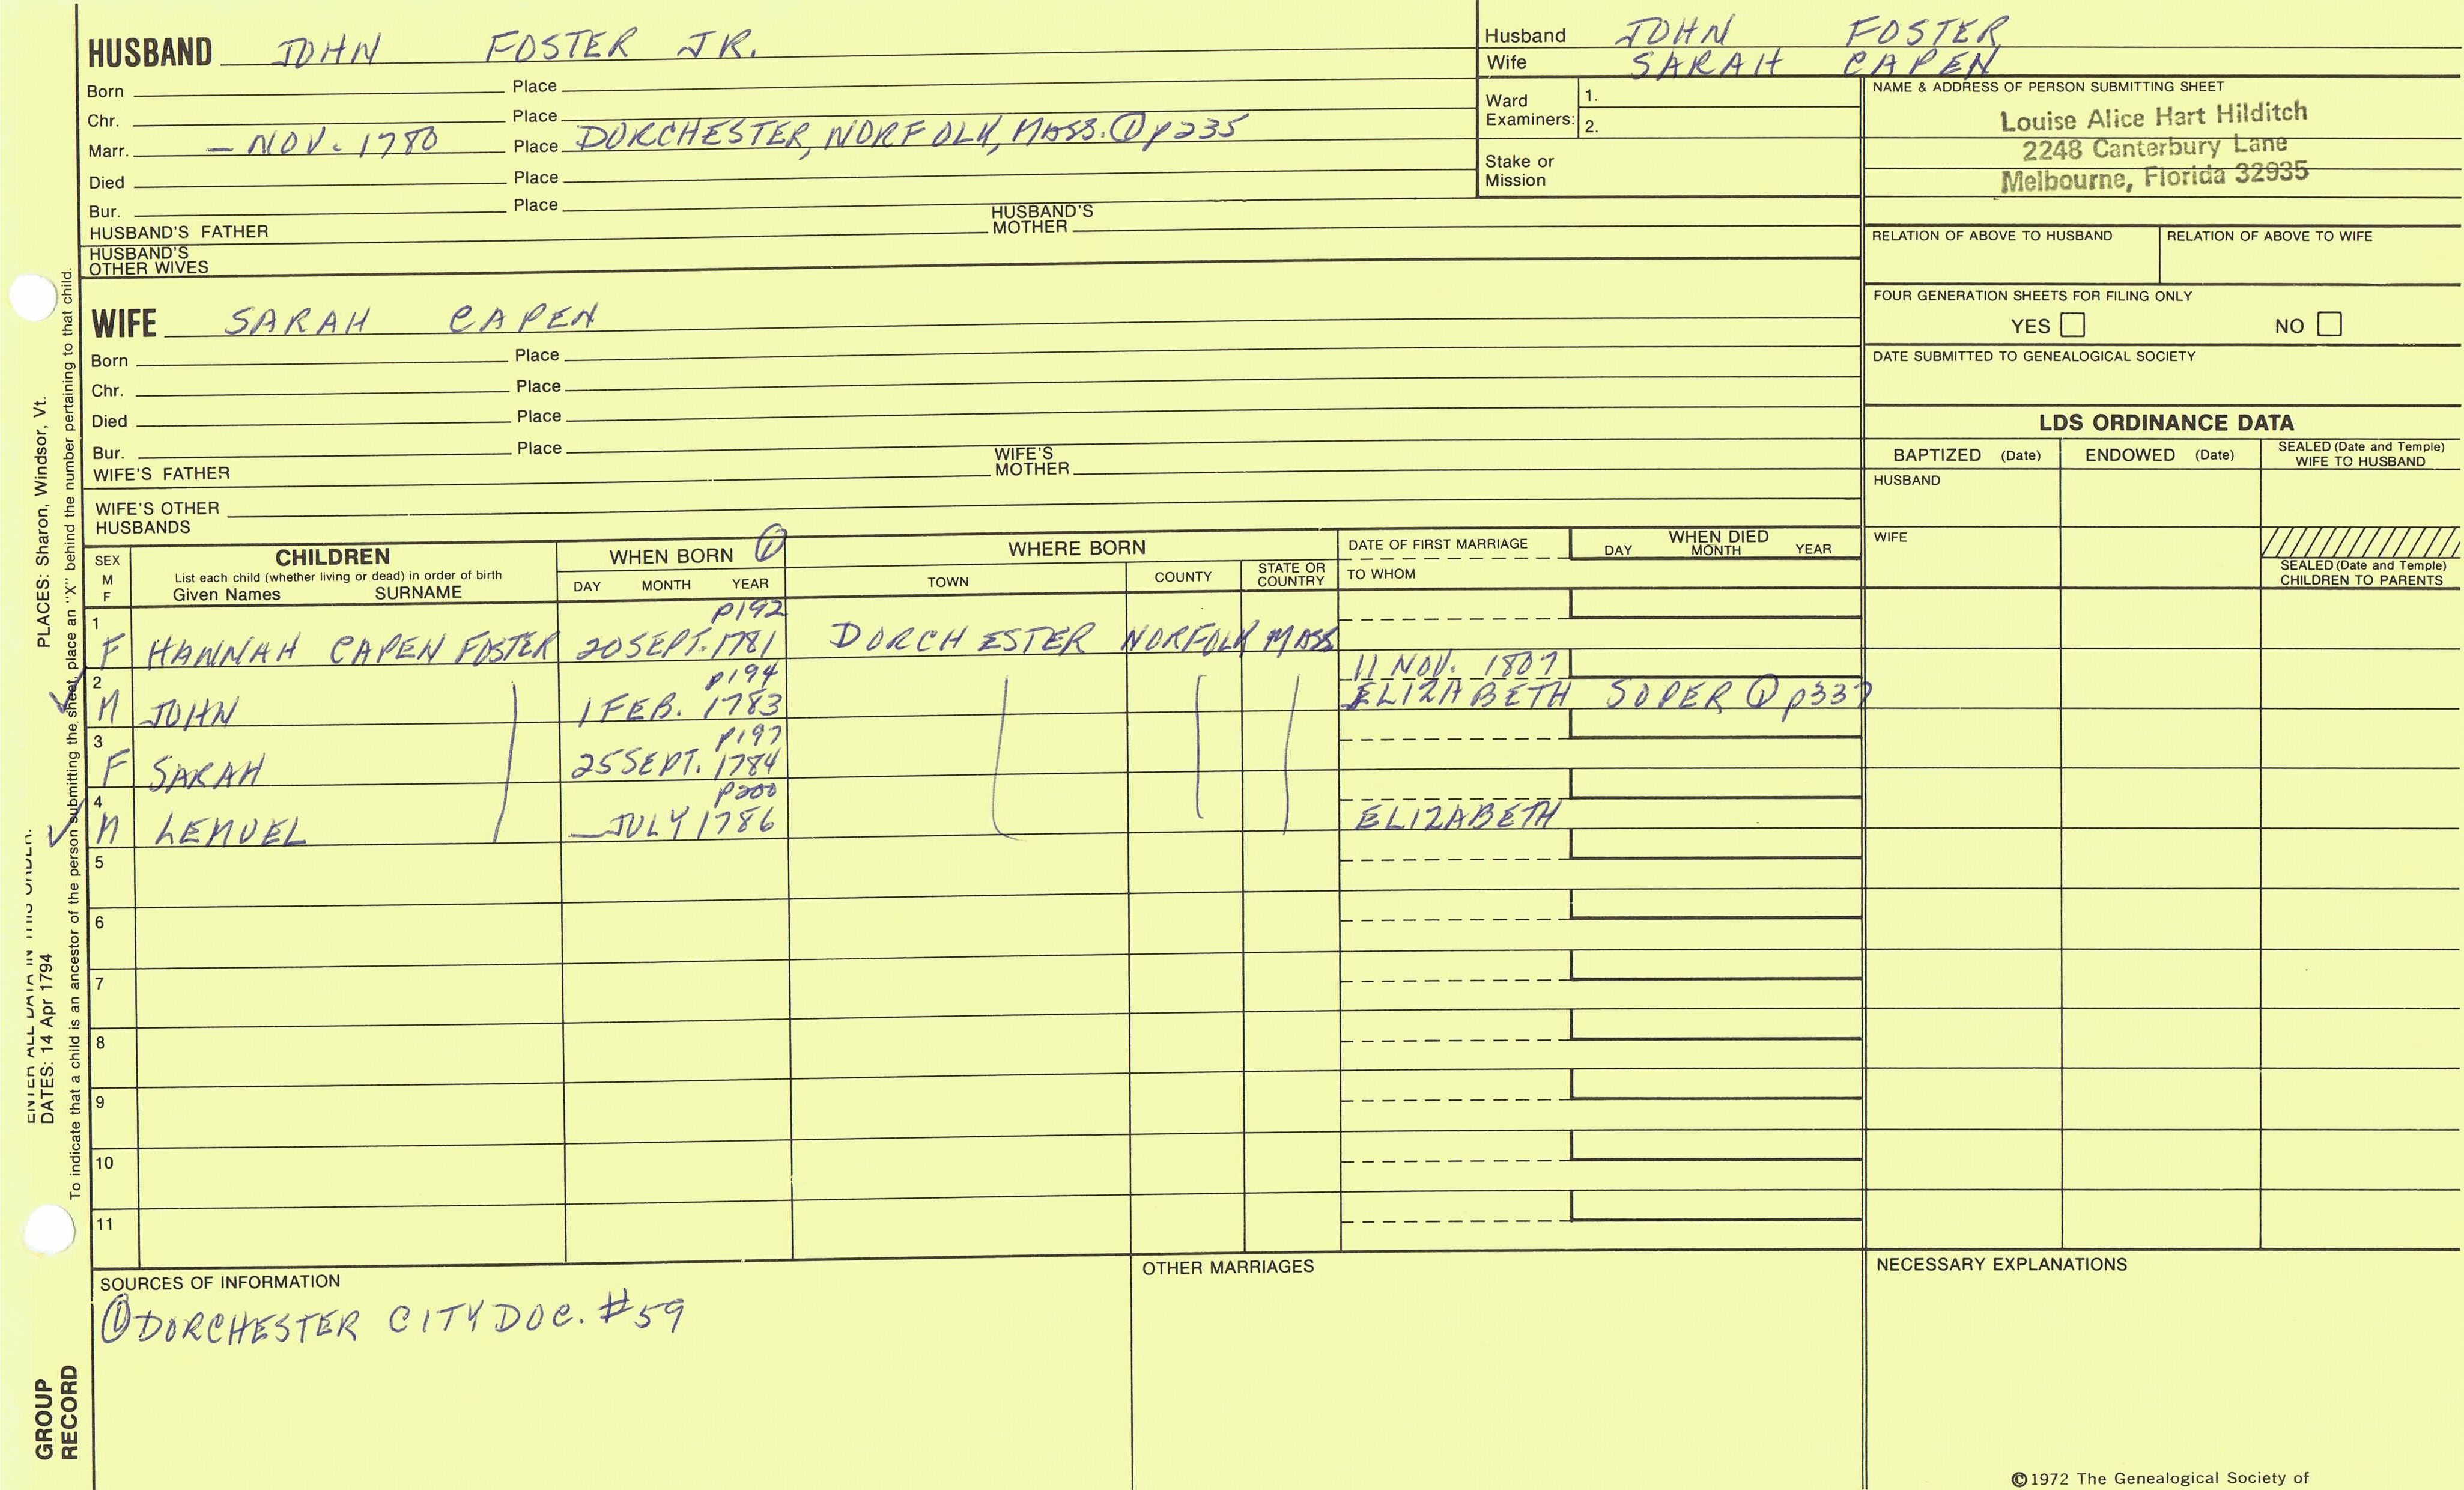 HUSBAND JOHN FOSTER JR.
Born Place
Chr. Place
Marr. – NOV. 1780 Place DORCHESTER, NORFOLK, MASS. ① p235
Died Place
Bur. Place
HUSBAND'S FATHER HUSBAND'S MOTHER
HUSBAND'S OTHER WIVES
Husband JOHN FOSTER
Wife SARAH CAPEN
Ward Examiners: 1.
2.
Stake or Mission
NAME & ADDRESS OF PERSON SUBMITTING SHEET
Louise Alice Hart Hilditch
2248 Canterbury Lane
Melbourne, Florida 32935
RELATION OF ABOVE TO HUSBAND RELATION OF ABOVE TO WIFE
FOUR GENERATION SHEETS FOR FILING ONLY
YES NO
DATE SUBMITTED TO GENEALOGICAL SOCIETY
WIFE SARAH CAPEN
Born Place
Chr. Place
Died Place
Bur. Place
WIFE'S FATHER WIFE'S MOTHER
WIFE'S OTHER HUSBANDS
LDS ORDINANCE DATA
BAPTIZED (Date) ENDOWED (Date) SEALED (Date and Temple) WIFE TO HUSBAND
HUSBAND
WIFE
SEALED (Date and Temple) CHILDREN TO PARENTS
SEX M F
CHILDREN
List each child (whether living or dead) in order of birth
Given Names SURNAME
WHEN BORN ①
DAY MONTH YEAR
WHERE BORN
TOWN COUNTY STATE OR COUNTRY
DATE OF FIRST MARRIAGE
TO WHOM
WHEN DIED
DAY MONTH YEAR
1 p192
F HANNAH CAPEN FOSTER 20 SEPT. 1781 DORCHESTER NORFOLK MASS
2 p194 11 NOV. 1807
M JOHN 1 FEB. 1783 ELIZABETH SOPER ① p337
3 p197
F SARAH 25 SEPT. 1784
4 p200
M LEMUEL JULY 1786 ELIZABETH
5
6
7
8
9
10
11
SOURCES OF INFORMATION
① DORCHESTER CITY DOC. #59
OTHER MARRIAGES
NECESSARY EXPLANATIONS
©1972 The Genealogical Society of
PLACES: Sharon, Windsor, Vt.
ENTER ALL DATA IN THIS ORDER:
DATES: 14 Apr 1794
To indicate that a child is an ancestor of the person submitting the sheet, place an "X" behind the number pertaining to that child.
GROUP
RECORD